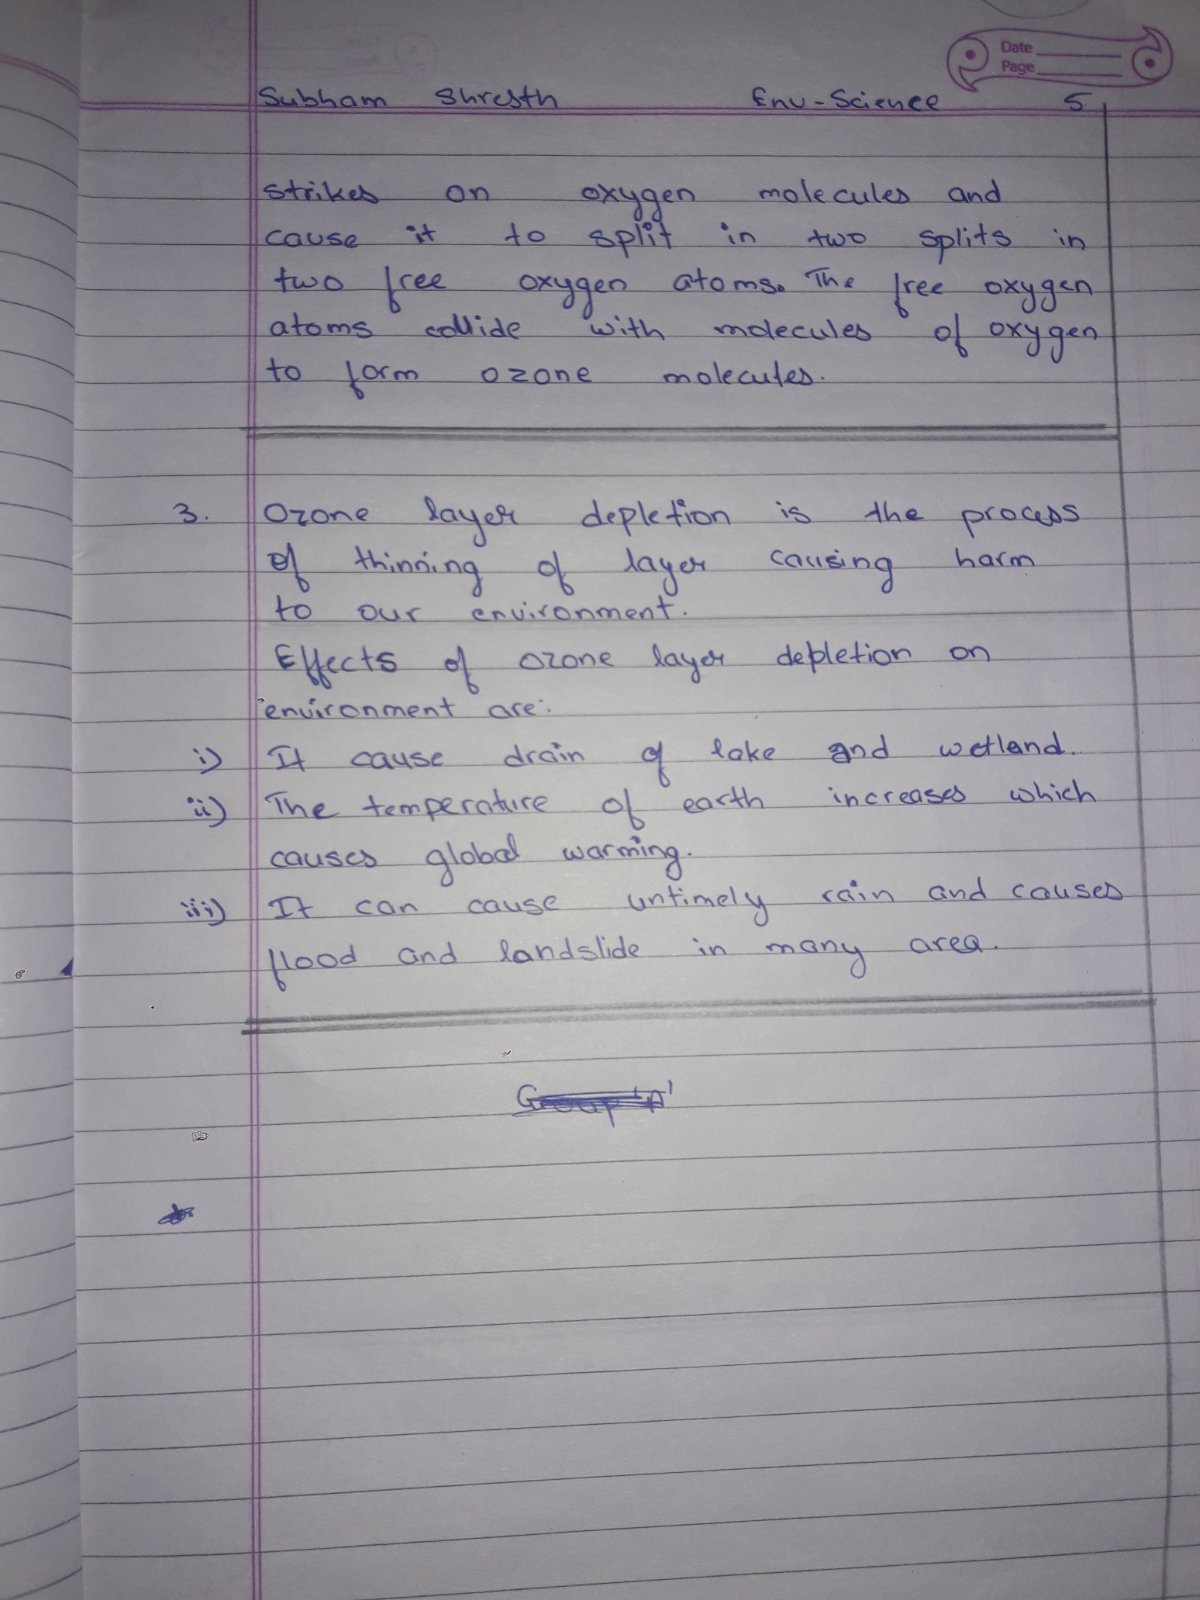 Date
Page
Subham Shresth Env-Science 5
strikes on oxygen molecules and
cause it to split in two splits in
two free oxygen atoms. The free oxygen
atoms collide with molecules of oxygen
to form ozone molecules.
3. Ozone layer depletion is the process
of thinning of layer causing harm
to our environment.
Effects of ozone layer depletion on
environment are:
i) It cause drain of lake and wetland.
ii) The temperature of earth increases which
causes global warming.
iii) It can cause untimely rain and causes
flood and landslide in many area.
Group 'A'